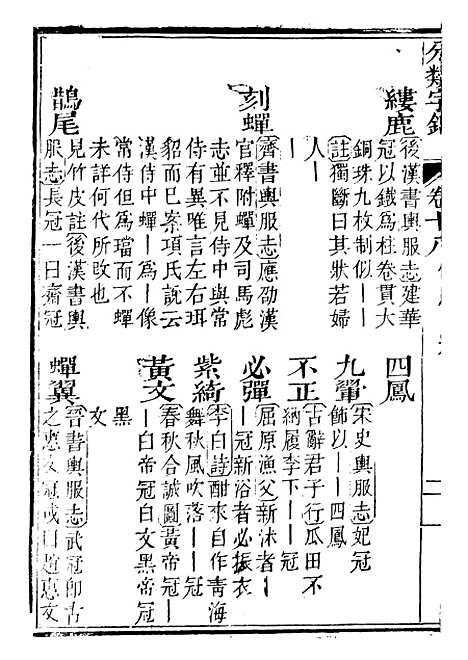 分類字錦
卷十八
縷鹿
後漢書輿服志建華
冠以鐵爲柱卷貫大
銅珠九枚制似丨丨
註獨斷曰其狀若婦
人丨丨
刻蟬
齊書輿服志應劭漢
官釋附蟬及司馬彪
志並不見侍中與常
侍有異唯言左右珥
貂而已案項氏說云
漢侍中蟬丨爲丨像
常侍但爲璫而不蟬
未詳何代所改也
鵲尾
見竹皮註後漢書輿
服志長冠一曰齋冠
四鳳
九翬
宋史輿服志妃冠
飾以丨丨四鳳
不正
古辭君子行瓜田不
納履李下丨丨冠
必彈
屈原漁父新沐者丨
丨冠新浴者必振衣
紫綺
李白詩酣來自作青海
舞秋風吹落丨丨冠
黃文
春秋合誠圖黃帝冠丨
丨白帝冠白文黑帝冠
黑
文
蟬翼
晉書輿服志武冠卽古
之惠文冠或曰趙惠文